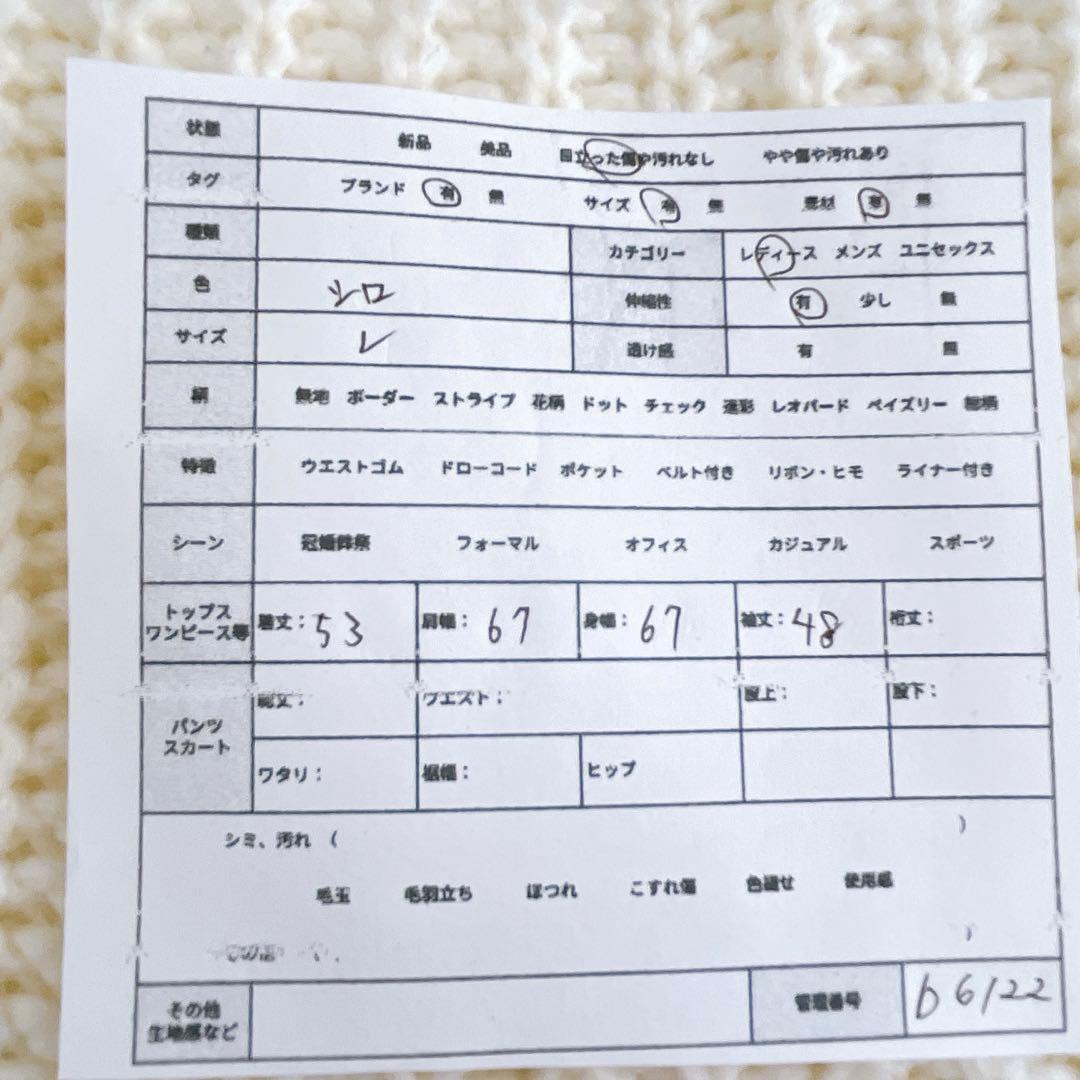 状態 新品 美品 目立った傷や汚れなし やや傷や汚れあり
タグ ブランド 有 無 サイズ 有 無 素材 有 無
種類 カテゴリー レディース メンズ ユニセックス
色 シロ 伸縮性 有 少し 無
サイズ L 透け感 有 無
柄 無地 ボーダー ストライプ 花柄 ドット チェック 迷彩 レオパード ペイズリー 総柄
特徴 ウエストゴム ドローコード ポケット ベルト付き リボン・ヒモ ライナー付き
シーン 冠婚葬祭 フォーマル オフィス カジュアル スポーツ
トップス
ワンピース等 着丈：53 肩幅：67 身幅：67 袖丈：48 裄丈：
総丈： ウエスト： 股上： 股下：
パンツ
スカート
ワタリ： 裾幅： ヒップ
シミ、汚れ （ ）
毛玉 毛羽立ち ほつれ こすれ傷 色褪せ 使用感
）
その他
生地感など 管理番号 b6122